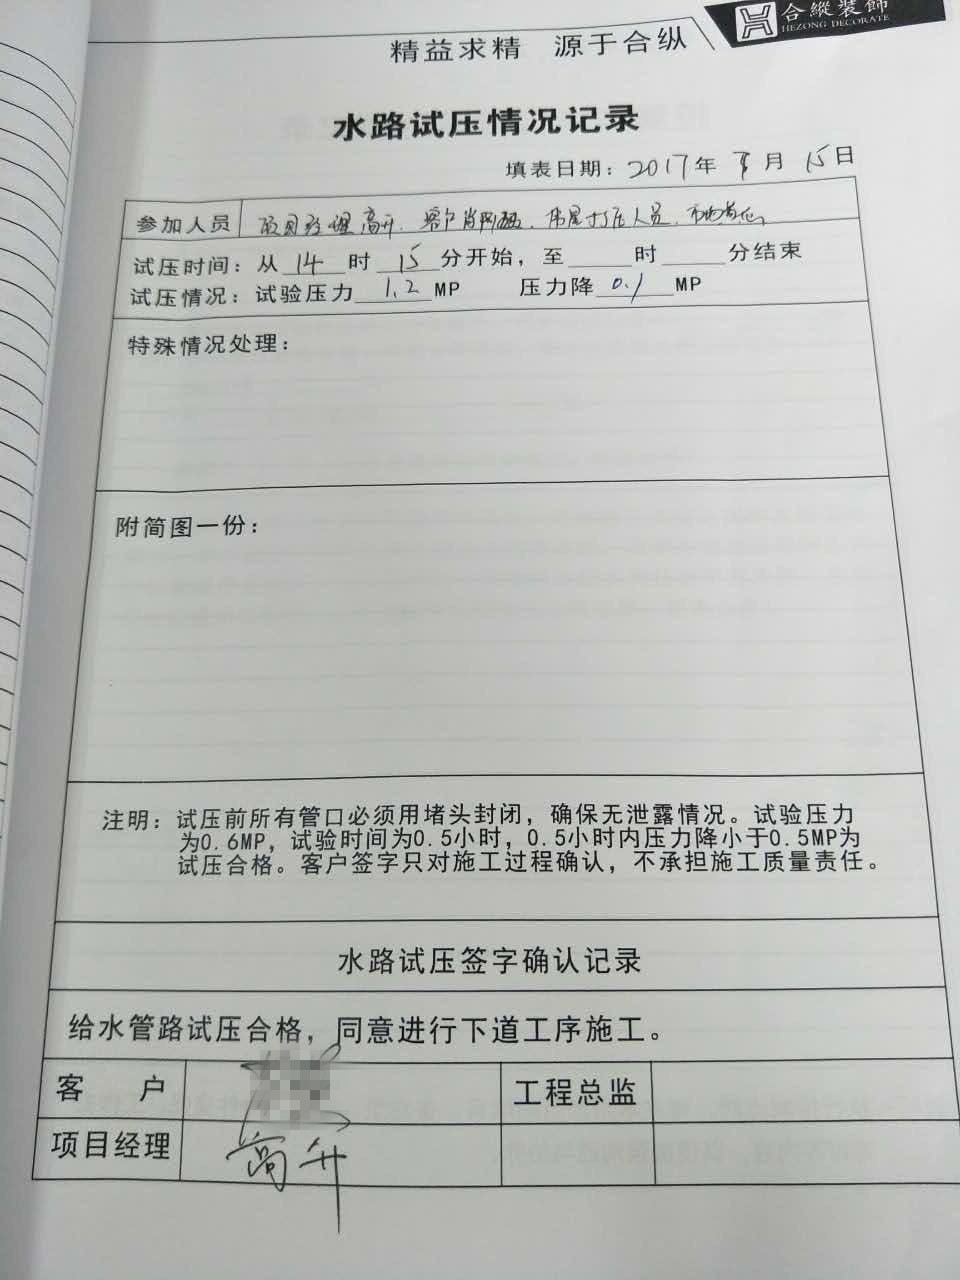 合縱装飾
HEZONG DECORATE
精益求精 源于合纵
水路试压情况记录
填表日期：2017年 月 15日
参加人员 项目经理高升、客户肖 人员、
试压时间：从 14 时 15 分开始，至 时 分结束
试压情况：试验压力 1.2 MP 压力降 0.1 MP
特殊情况处理：
附简图一份：
注明：试压前所有管口必须用堵头封闭，确保无泄露情况。试验压力
为0.6MP，试验时间为0.5小时，0.5小时内压力降小于0.5MP为
试压合格。客户签字只对施工过程确认，不承担施工质量责任。
水路试压签字确认记录
给水管路试压合格，同意进行下道工序施工。
客 户 工程总监
项目经理 高升